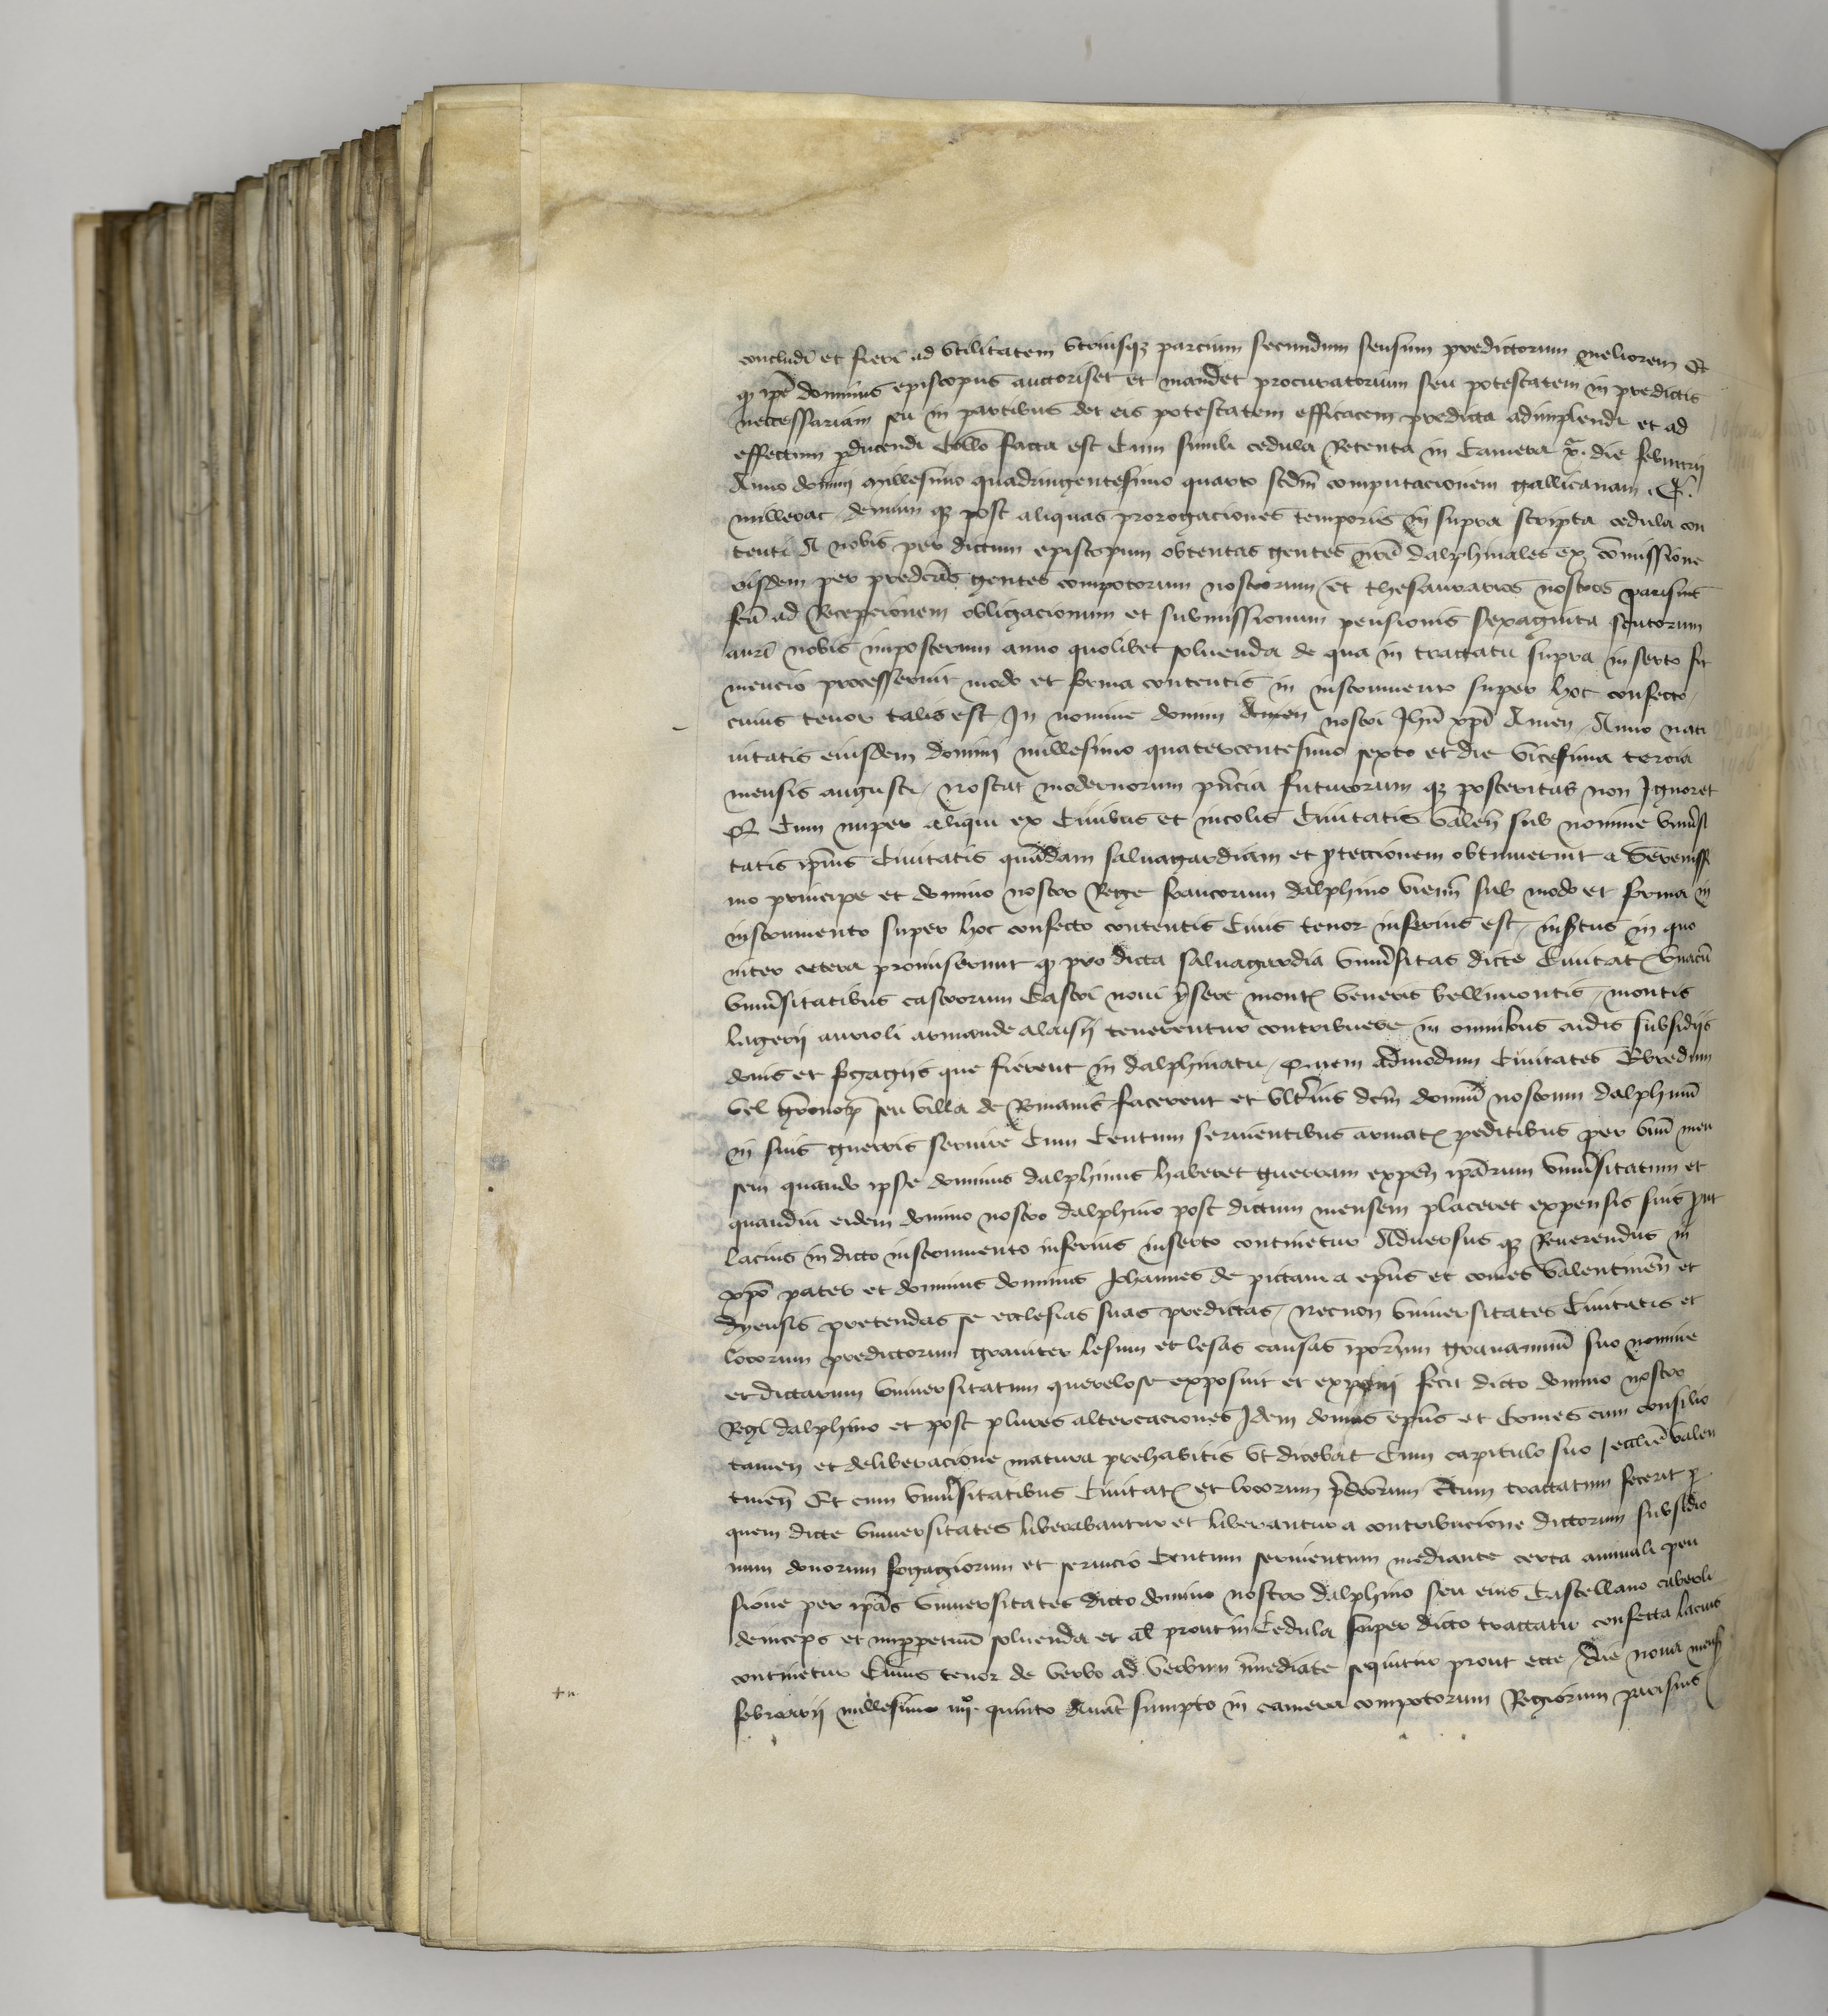 concludi et fieri ad utilitatem utriusque parcium secundum sensum predictorum meliorem Et
q̄ ip̄e dominus episcopus auctoriset et mandet procuratorium seu potestatem in predictis
neccessariam seu in partibus det eis potestatem efficacem predicta adimplendi et ad
effectum p̄ducendi Coll̄o facta est Cum simili cedula Retenta in Camera x.ª die februarij
Anno domini millesimo quadringentesimo quarto scdm̄ computacionem gallicanam
millerac demum q̄ post aliquas prorogaciones temporis in supra scripta cedula con
tenti A nobis per dictum episcopum obtentas gentes nr̄e dalphinales ex cōmissione
eisdem per predc̄as gentes compotorum nostrorum et thesaurarios nostros parisius
fc̄a ad Recepcionem obligacionum et submissionum pensionis sexaginta scutorum
auri nobis imposterum anno quolibet soluenda de qua in tractatu supra inserto fit
mencio processerunt modo et forma contentis in instrumento super hoc confecto
cuius tenor talis est In nomine domini Amen nostri Jhū xpī Amen Anno nati
uitatis eiusdem domini millesimo quatercentesimo sexto et die vicesima tercia
mensis augusti noscat modernorum pn̄cia futurorum q̄ posteritas non Ignoret
Q̄ Cum nuper aliqui ex Ciuibus et incolis Ciuitatis valen̄ sub nomine vniūsi
tatis ip̄ius Ciuitatis quādam saluagardiam et p̄teccionem obtinuerint a Serenissi
mo principe et domino nostro Rege francorum dalphino vienn̄ sub modo et forma in
instrumento super hoc confecto contentis Cuius tenor inferius est insertus in quo
inter cetera promiserunt q̄ pro dicta saluagardia vniūsitas dicte Ciuitat̄ vnacū
vniūsitatibus castrorum Castri noui ysere mont̄ veneris bellimontis montis
lagerij aurioli armande alaisij tenerentur contribuere in omnibus aidis subsidijs
donis et fogagijs que fierent in dalphinatu Quem admodum Ciuitates Ebredun
vel gr̄onop̄ seu villa de Romanis facerent et ult̄ius dcm̄ domnū nostrum dalphinū
in suis guerris seruire Cum Centum seruientibus armat̄ peditibus per vnū men
sem quando ipse dominus dalphinus haberet guerram expen̄ ip̄arum vniūsitatum et
quandiu eidem domino nostro dalphino post dictum mensem placeret expensis suis put
lacius in dicto instrumento inferius inserto continetur Aduersus q̄ Reuerendus in
xpo pater et dominus dominus Johannes de pictauia ep̄us et comes valentinen̄ et
dyensis pretendas se ecclesias suas predictas necnon vniuersitates Ciuitatis et
locorum predictorum grauiter lesum et lesas causas ip̄orum grauaminū suo nomine
et dictarum vniuersitatum querelose exposuit et exponi fecit dicto domino nostro
Regi dalphino et post plures altercaciones Idem domn̄s ep̄us et Comes cum consilio
tamen et deliberacione matura prehabitis vt dicebat Cum capitulo suo eccliē valen
tinen̄ Et cum vniūsitatibus Ciuitat̄ et locorum p̄dcōrum c̄tum tractatum fecerit p̄
quem dicte vniuersitates liberabantur et liberantur a contribucione dictorum subsidio
rum donorum fogagiorum et seruicio Centum seruientum mediante certa annuali pen
sione per ip̄as vniuersitates dicto domino nostro dalphino seu eius Castellano cabeoli
deinceps et imppetuū soluenda et al̄ prout in Cedula super dicto tractatu confecta lacius
continetur Cuius tenor de verbo ad verbum īmediate sequitur prout ecce Die nona mens̄
februarij millesimo iiijº. quinto Auāt sumpto in camera compotorum Regiorum parisius